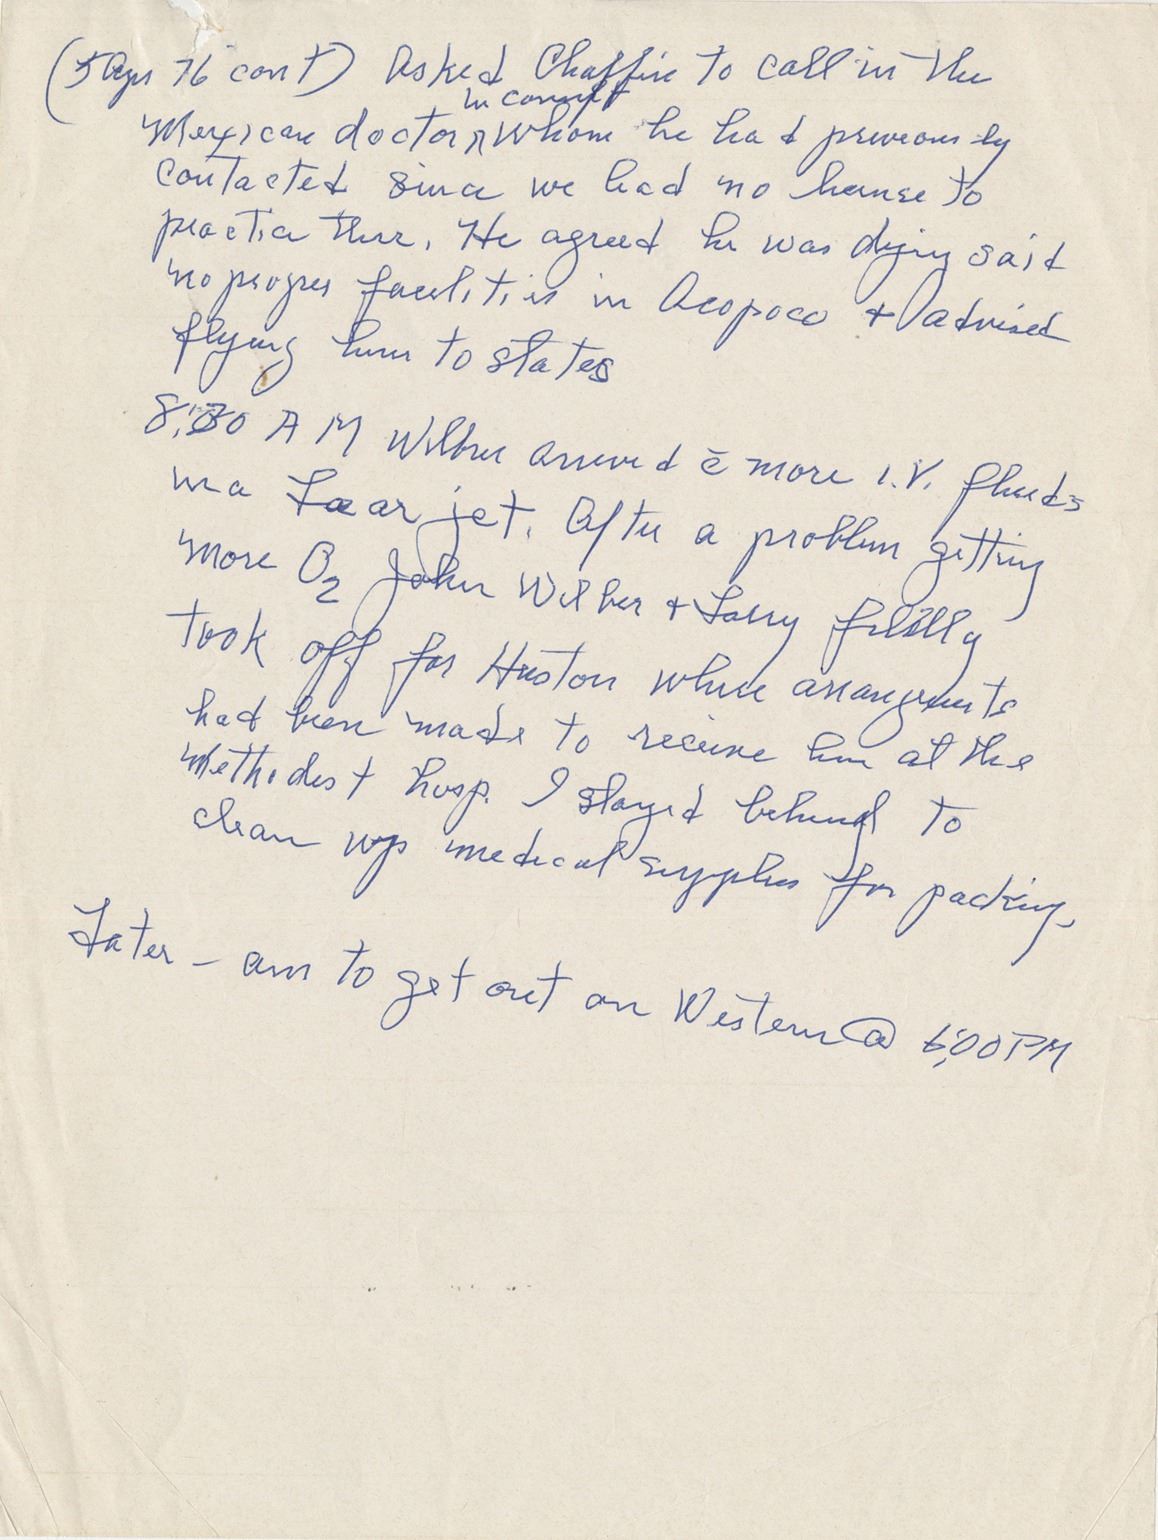 (5 Apr 76 cont) Asked Chaffin to call in the
in consult
Mexican doctor ∧ whom he had previously
contacted since we had no license to
practice there. He agreed he was dying said
no proper facilities in Acopoco + advised
flying him to states
8:30 A M Wilbur arrived c̄ more I.V. fluids
in a Lear jet. After a problem getting
more O2 John Wilber + Larry finally
took off for Huston where arrangments
had been made to receive him at the
Methodist hosp. I stayed behind to
clean up medical supplies for packing.
Later – am to get out on Western @ 6:00 PM